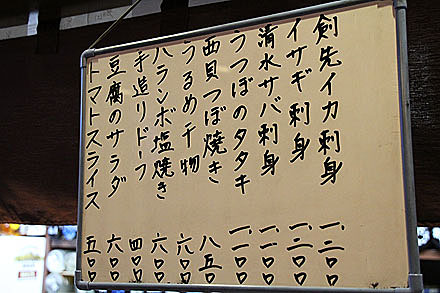 剣先イカ刺身 一、二〇〇
イサギ刺身 一、二〇〇
清水サバ刺身 一、一〇〇
うつぼのタタキ 一、一〇〇
西貝つぼ焼き 八五〇
うるめ干物 六〇〇
ハランボ塩焼き 六〇〇
手造りドーフ 四〇〇
豆腐のサラダ 六〇〇
トマトスライス 五〇〇